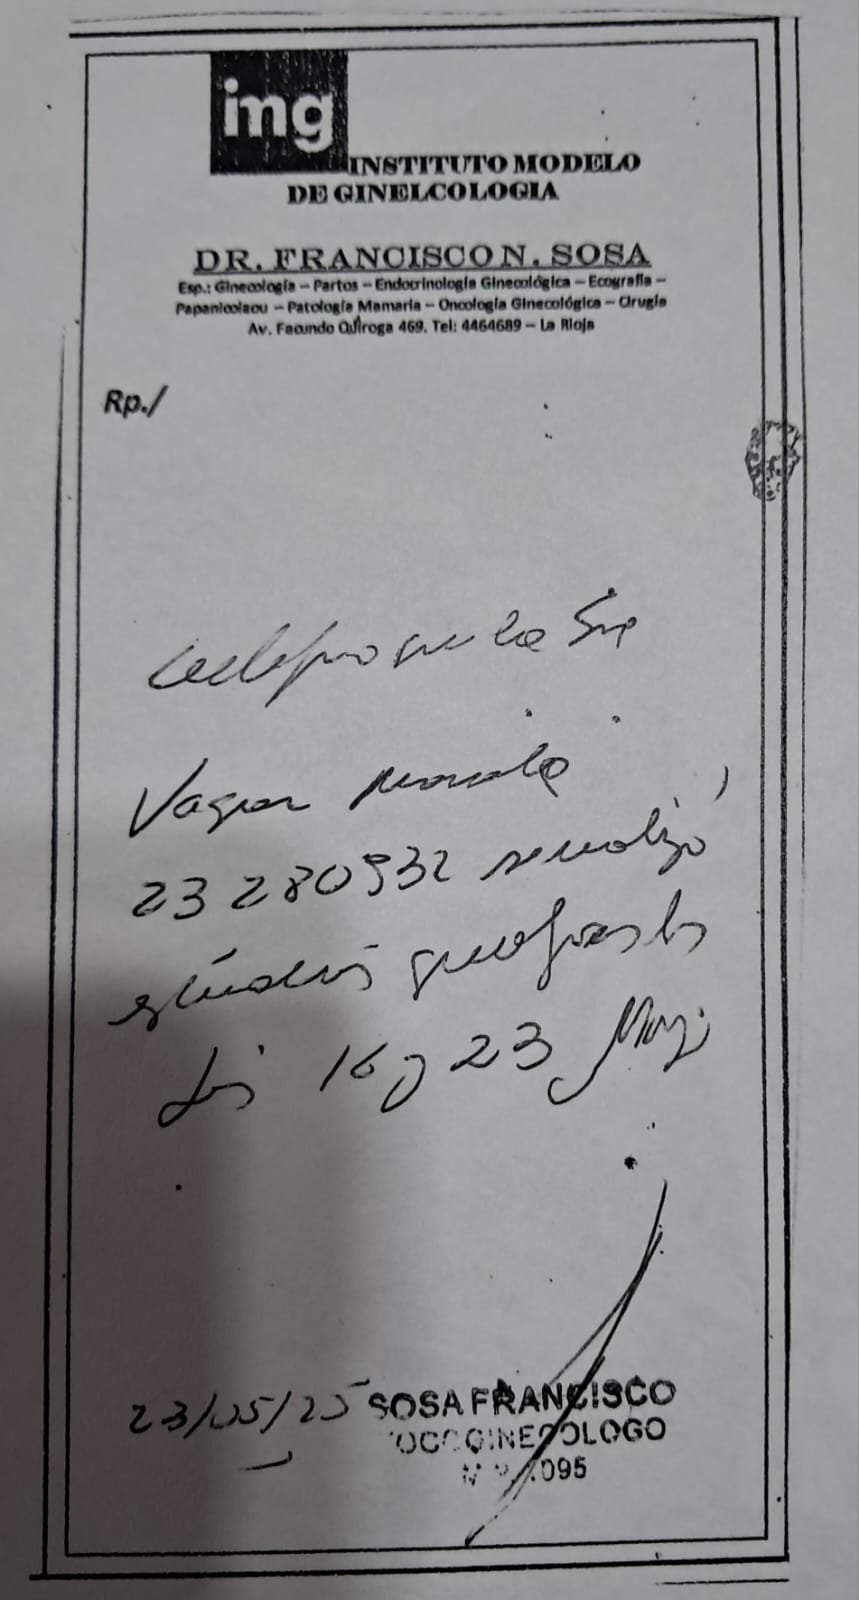 img
INSTITUTO MODELO
DE GINELCOLOGIA
DR. FRANCISCO N. SOSA
Esp.: Ginecología – Partos – Endocrinología Ginecológica – Ecografía –
Papanicolaou – Patología Mamaria – Oncología Ginecológica – Cirugía
Av. Facundo Quiroga 469. Tel: 4464689 – La Rioja
Rp./
que la Sra
23 280932 realizó
estudios los
16 y 23 Mayo
23/05/25 SOSA FRANCISCO
TOCOGINECOLOGO
095